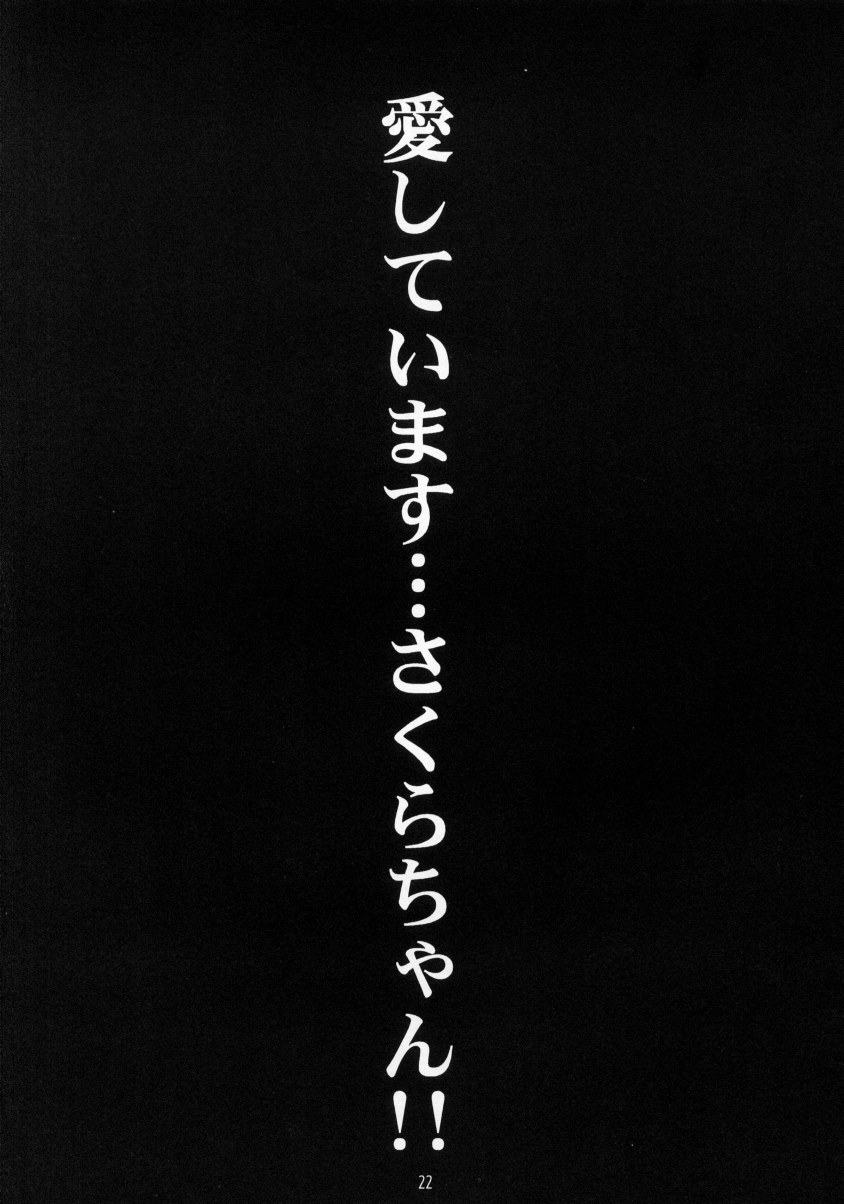 愛しています…さくらちゃん!!
22